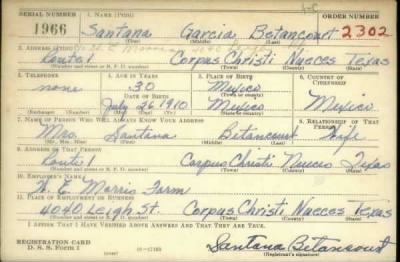 SERIAL NUMBER 1. NAME (Print) ORDER NUMBER
1966 Santana Garcia Betancourt 2302
(First) (Middle) (Last)
2. ADDRESS (Print)
Route 1 Corpus Christi Nueces Texas
(Number and street or R. F. D. number) (Town) (County) (State)
3. TELEPHONE 4. AGE IN YEARS 5. PLACE OF BIRTH 6. COUNTRY OF CITIZENSHIP
none 30 Mexico
DATE OF BIRTH
July 26 1910 Mexico Mexico
(Exchange) (Number) (Mo.) (Day) (Yr.) (State or country)
7. NAME OF PERSON WHO WILL ALWAYS KNOW YOUR ADDRESS 8. RELATIONSHIP OF THAT PERSON
Mrs. Santana Betancourt Wife
(Mr., Mrs., Miss) (First) (Middle) (Last)
9. ADDRESS OF THAT PERSON
Route 1 Corpus Christi Nueces Texas
(Number and street or R. F. D. number) (Town) (County) (State)
10. EMPLOYER'S NAME
W. E. Morris Farm
11. PLACE OF EMPLOYMENT OR BUSINESS
4040 Leigh St. Corpus Christi Nueces Texas
(Number and street or R. F. D. number) (Town) (County) (State)
I AFFIRM THAT I HAVE VERIFIED ABOVE ANSWERS AND THAT THEY ARE TRUE.
REGISTRATION CARD
D. S. S. Form 1 Santana Betancourt
(Registrant's signature)